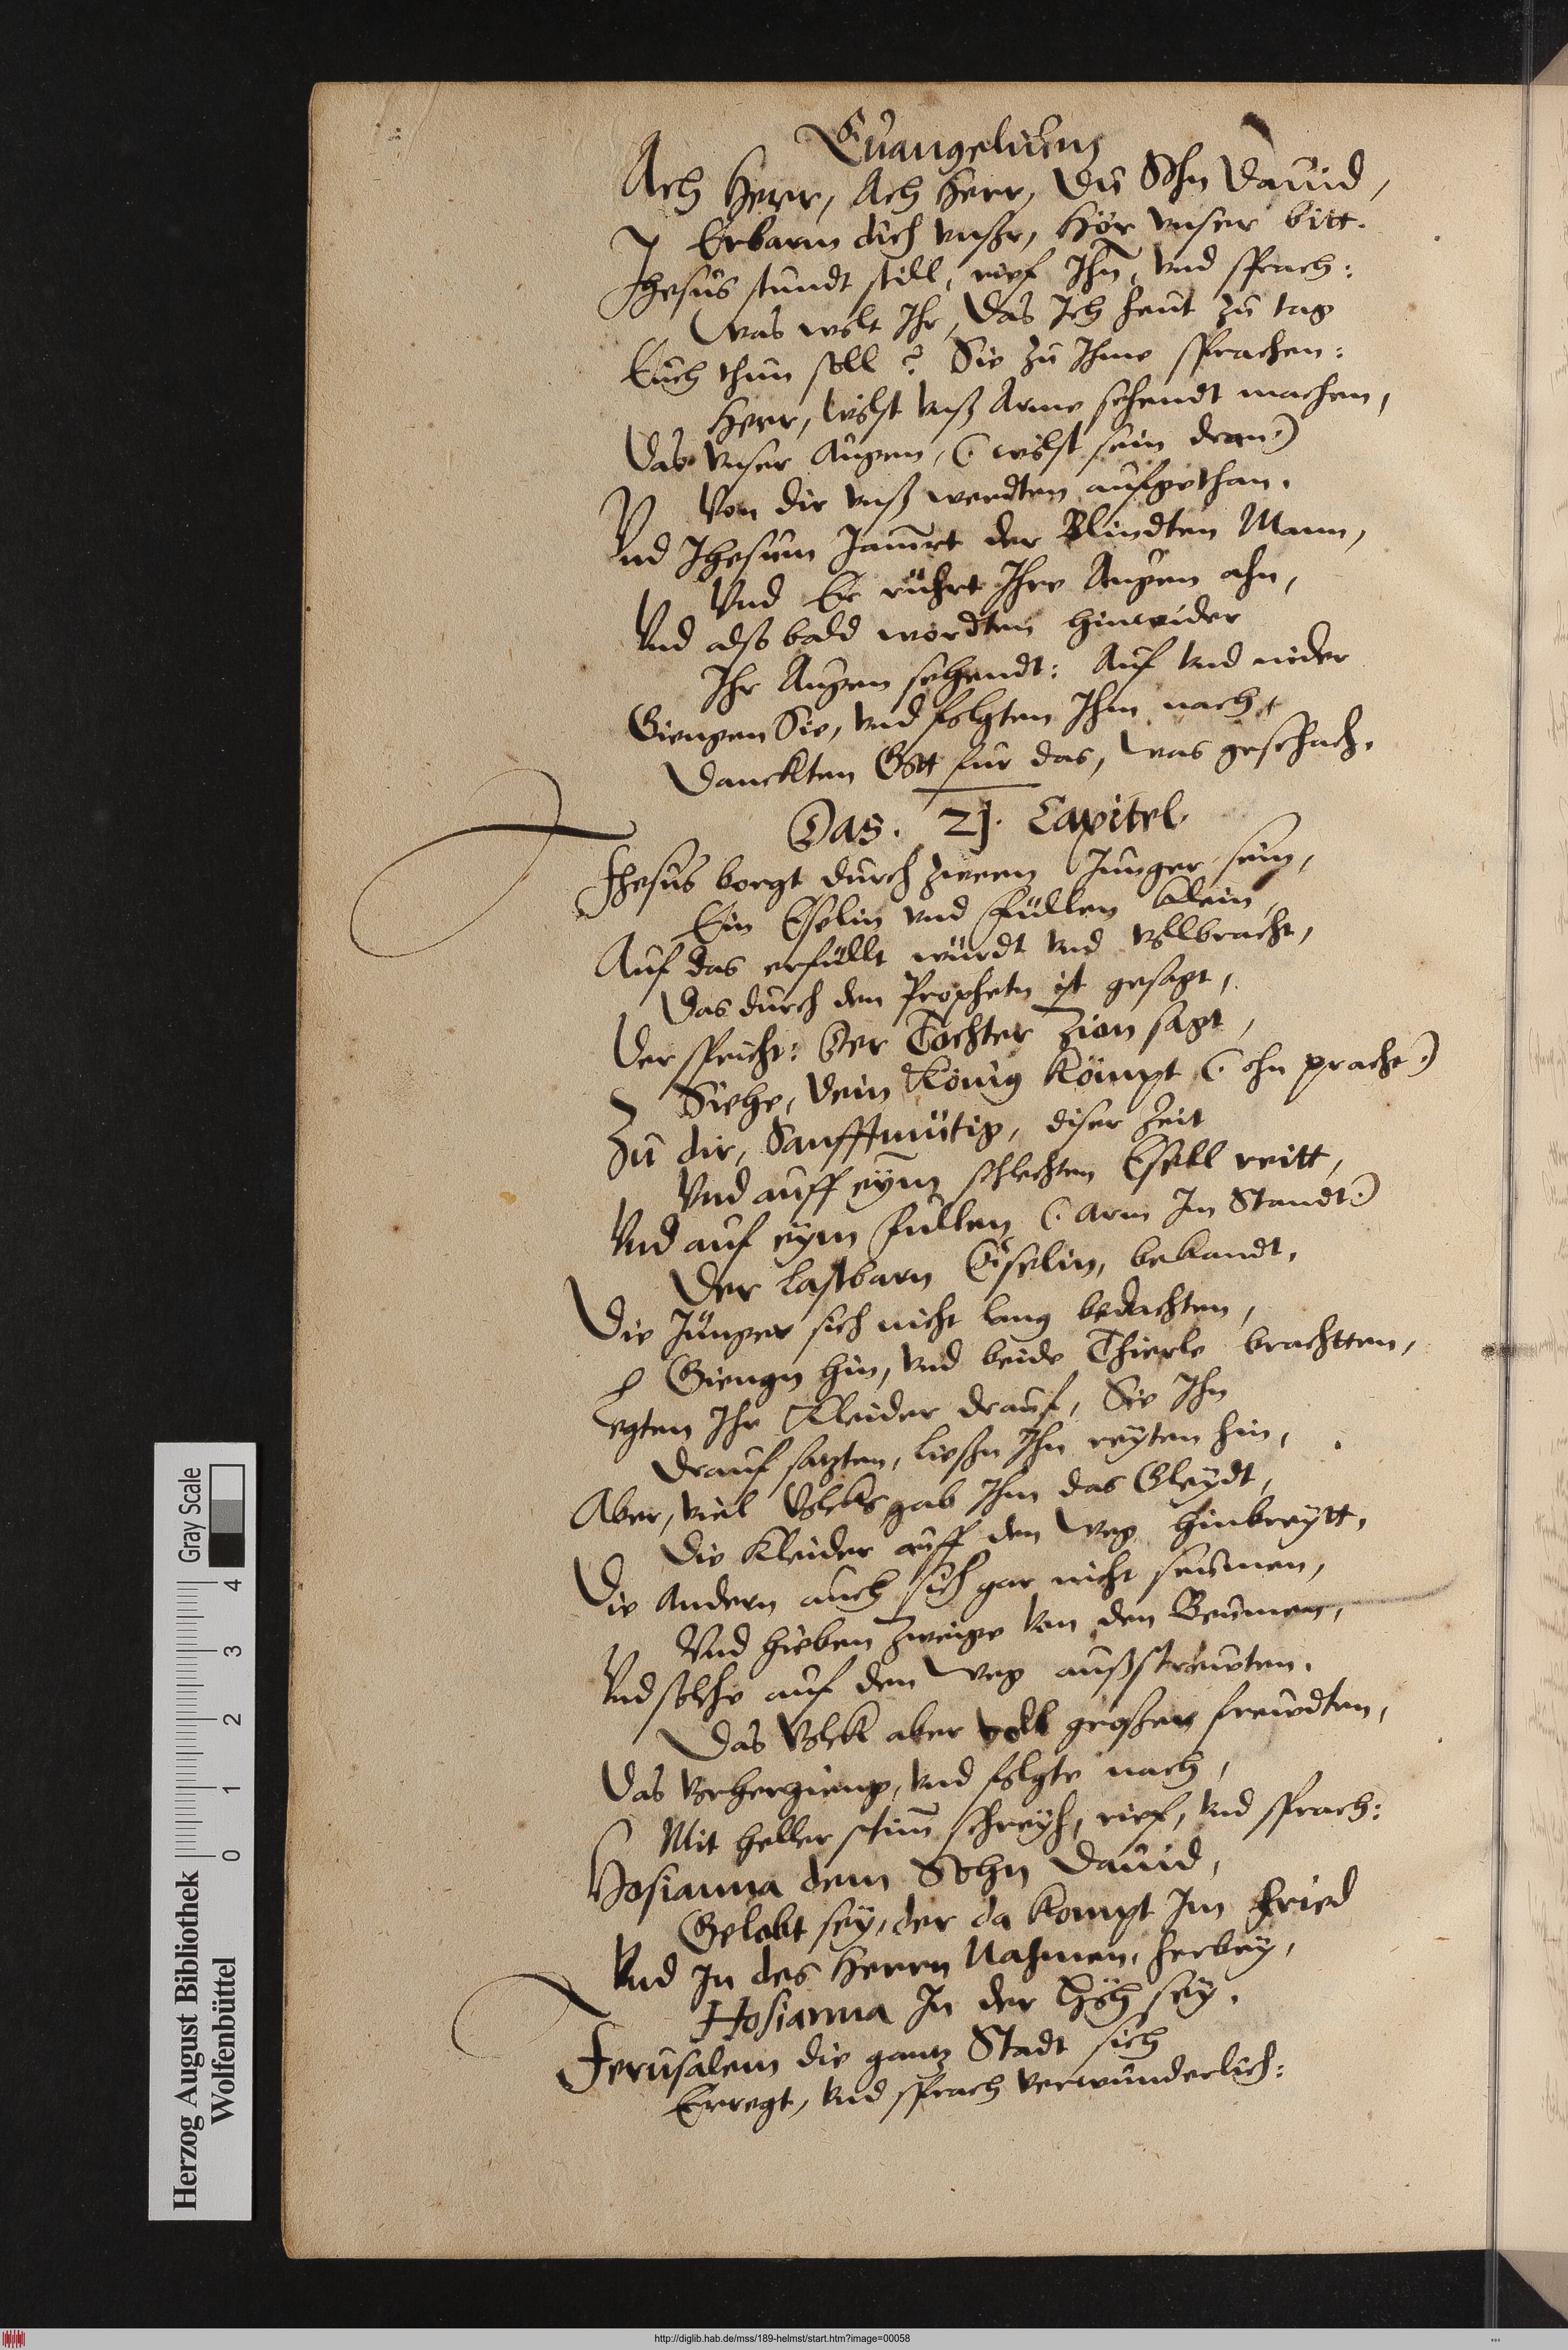 Euangelium
Ach Herr, Ach Herr, Du Sohn Dauid,
Erbarm dich vnßer, Hör vnser bitt.
Jhesus stundt still, rief Ihn, vnd sprach:
Was wolt Ihr, Das Ich heut zu tag
Euch thun soll? Sie zu Ihme sprachen:
Herr, wölst vnß Arme sehendt machen,
Das vnser Augen, (wölst sein dran)
Von dir vnß werdten aufgethan.
Vnd Jhesum Jamrt der Blindten Mann,
Vnd Er rührt Ihre Augen ahn,
Vnd alßbald wordten hinwider
Ihr Augen sehendt: Auf vnd nider
Giengen Sie, vnd folgten Ihm nach,
Danckten Gott für das, was geschach.
Das. 21. Capitel.
Jhesus borgt durch zween Junger sein,
Ein Eselin vnd Füllen klein,
Auf das erfüllt würdt vnd vollbracht,
Das durch den Prophetn ist gesagt,
Der spricht: Der Tochter Zion sagt,
Siehe, dein König kömpt (ohn pracht)
Zu dir, Sanfftmütig, diser Zeit
Vnd auff eym schlechten Esell reitt,
Vnd auf eym Fullen (arm Im Standt)
Der lastbarn Eselin, bekandt.
Die Jünger sich nicht lang bedachten,
Giengn hin, vnd beide Thierle brachtten,
Legten Ihr Kleider drauf, Sie Ihn
Drauf satzten, ließn Ihn reyten hin,
Aber, viel Volcks gab Ihm das Gleydt,
Die Kleider auff den Weg hinbreytt,
Die Andern auch sich gar nicht seumen,
Vnd hieben Zweige von den Beumen,
Vnd solche auf den Weg außstreuten.
Das Volck aber voll großer freudten,
Das vorhergieng, vnd folgte nach,
Mit heller stim schreyh, rief, vnd sprach:
Hosianna dem Sohn Dauid,
Gelobt sey, der da kompt Im Fried
Vnd In des Herrn Nahmen, herbey,
Hosianna In der Höh sey.
Jerusalem die gantz Stadt sich
Erregt, vnd sprach verwunderlich:
Herzog August Bibliothek
Wolfenbüttel
0 1 2 3 4
Gray Scale
http://diglib.hab.de/mss/189-helmst/start.htm?image=00058